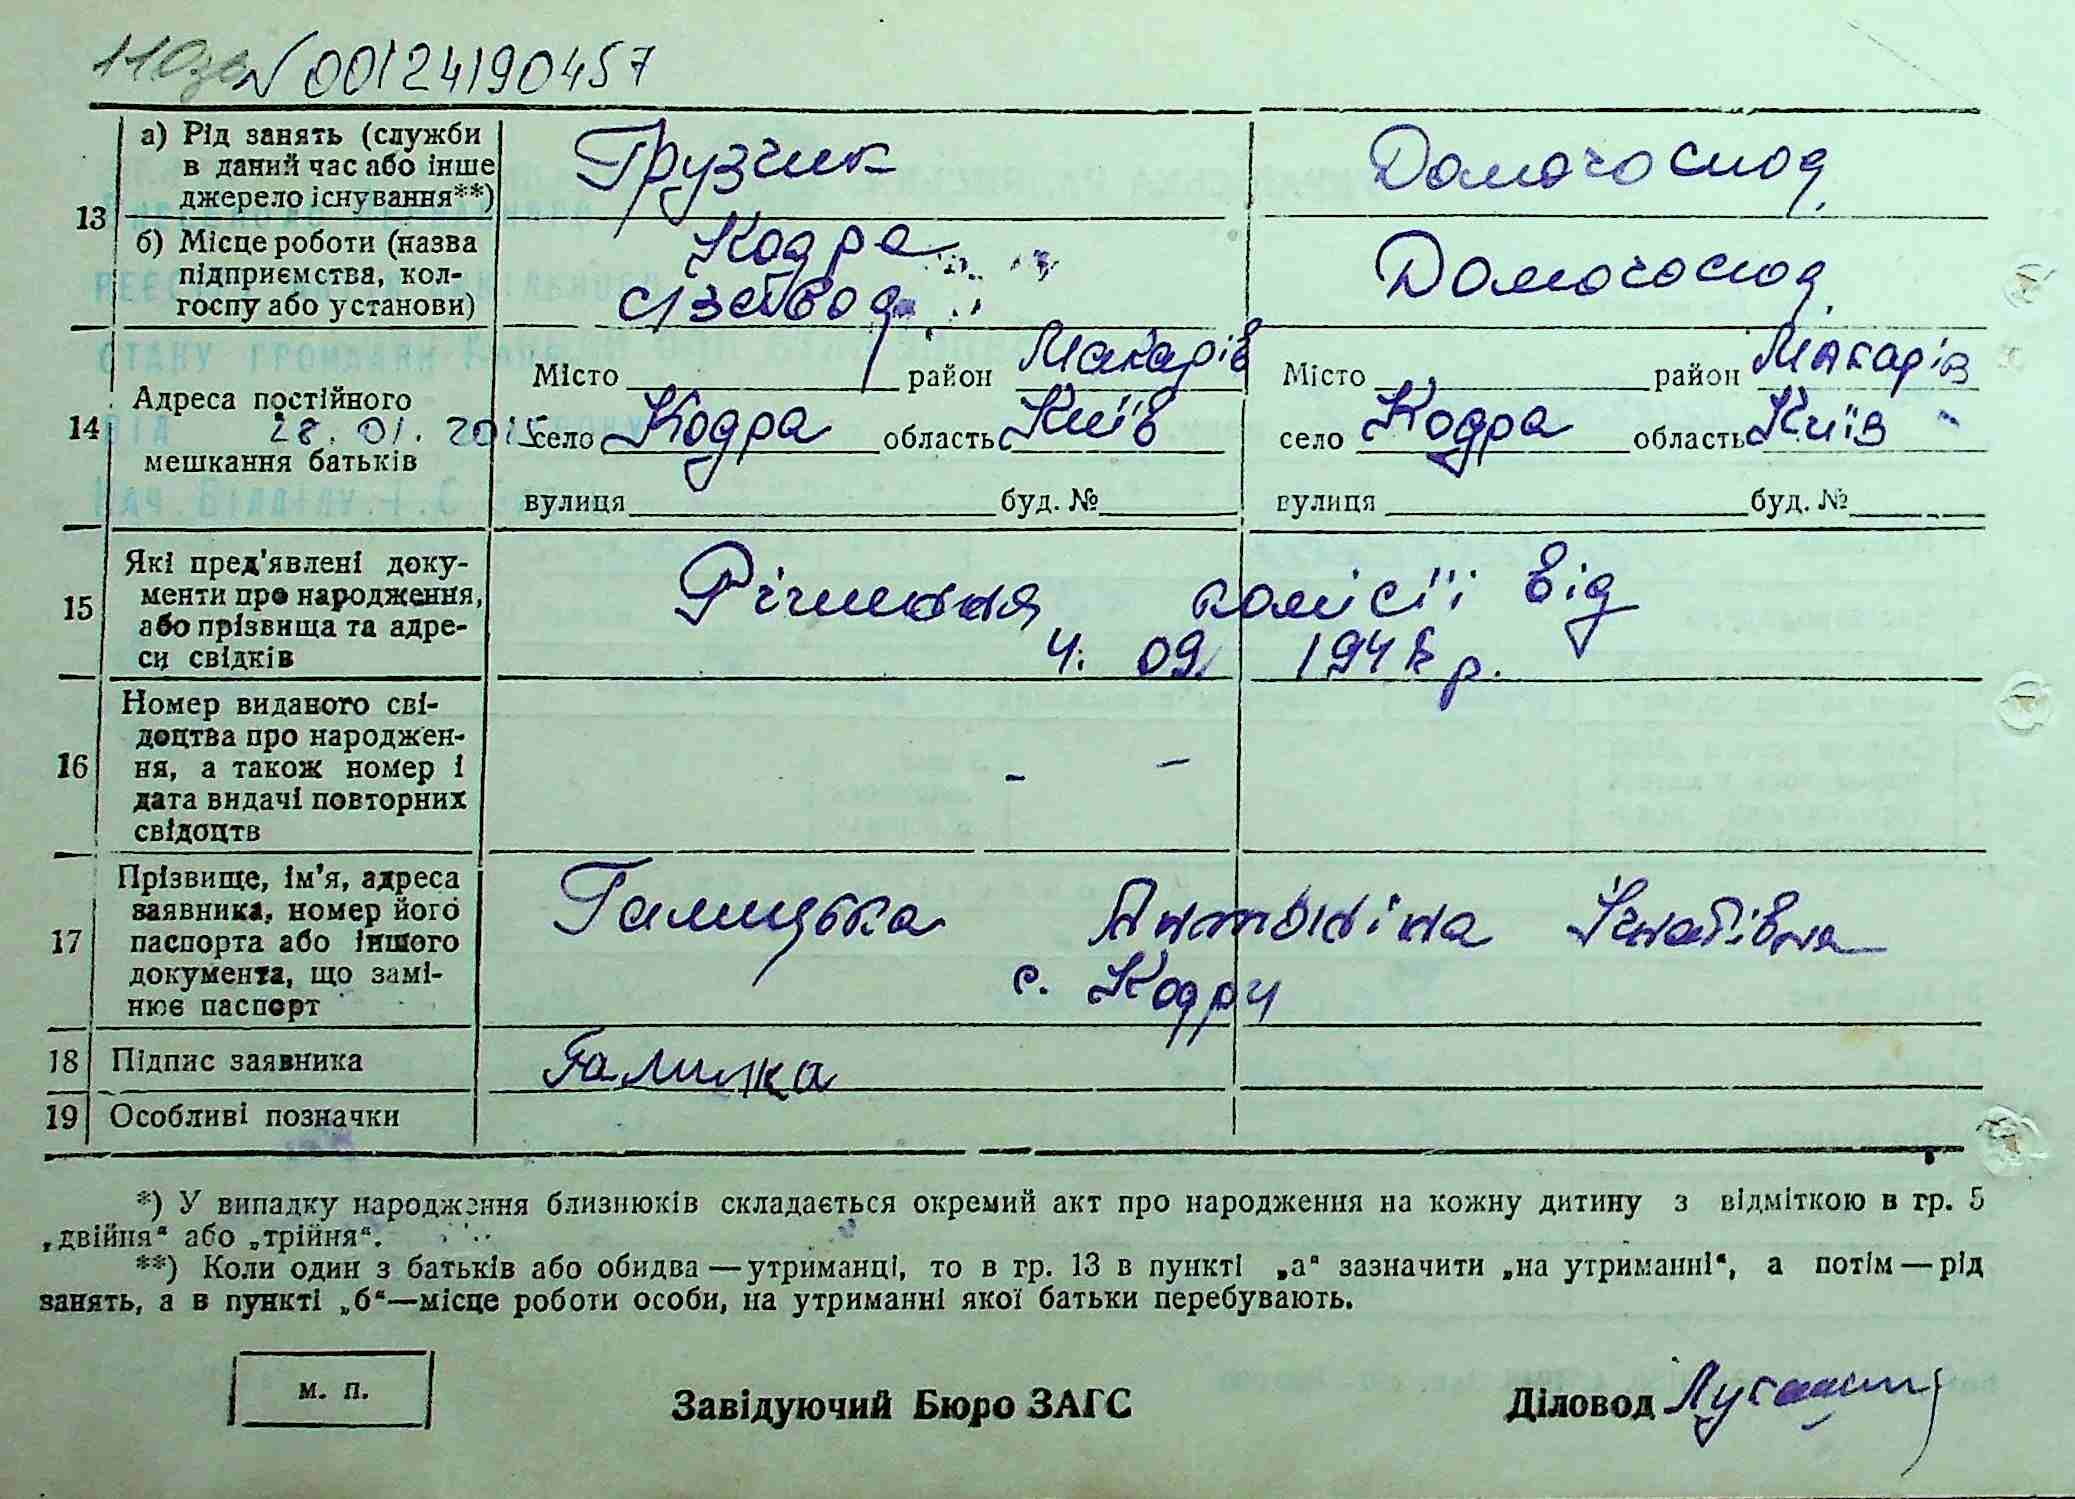 № 00124190457
13
а) Рід занять (служби в даний час або інше джерело існування**)
Грузчик
Домогоспод.
б) Місце роботи (назва підприємства, колгоспу або установи)
Кодра
с/завод
Домогоспод.
14
Адреса постійного мешкання батьків
28. 01. 2015
Місто район Макарів
село Кодра область Київ
вулиця буд. №
Місто район Макарів
село Кодра область Київ
вулиця буд. №
15
Які пред'явлені документи про народження, або прізвища та адреси свідків
Рішення комісії від
4. 09. 194 р.
16
Номер виданого свідоцтва про народження, а також номер і дата видачі повторних свідоцтв
- -
17
Прізвище, ім'я, адреса заявника, номер його паспорта або іншого документа, що замінює паспорт
Галицька Антоніна Ігнатівна
с. Кодри
18
Підпис заявника
19
Особливі позначки
*) У випадку народження близнюків складається окремий акт про народження на кожну дитину з відміткою в гр. 5
„двійня“ або „трійня“.
**) Коли один з батьків або обидва — утриманці, то в гр. 13 в пункті „а“ зазначити „на утриманні“, а потім — рід
занять, а в пункті „б“—місце роботи особи, на утриманні якої батьки перебувають.
м. п.
Завідуючий Бюро ЗАГС
Діловод